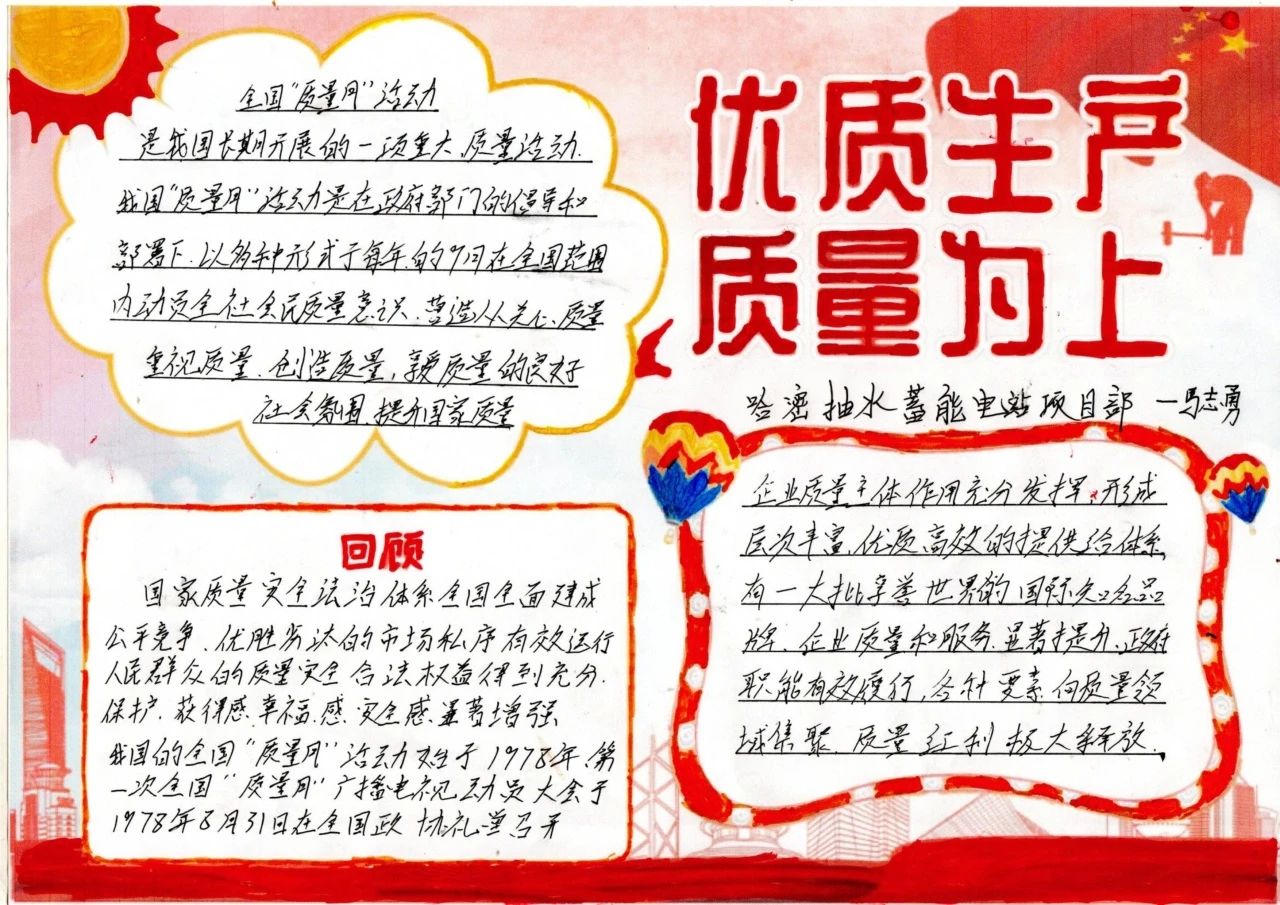 优质生产
质量为上
哈密抽水蓄能电站项目部 一马志勇
全国"质量月"活动
是我国长期开展的一项重大、质量活动.
我国"质量月"活动是在政府部门的倡导和
部署下.以多种形式于每年的9月在全国范围
内动员全社会民质量意识、营造人人关心、质量
重视质量.创造质量,享受质量的良好
社会氛围,提升国家质量
回顾
国家质量安全法治体系全国全面建成
公平竞争、优胜劣汰的市场秩序有效运行
人民群众的质量安全合法权益得到充分.
保护.获得感、幸福感、安全感显著增强、
我国的全国"质量月"活动始于1978年、第
一次全国"质量月"广播电视动员大会于
1978年8月31日在全国政协礼堂召开
企业质量主体作用充分发挥,形成
层次丰富、优质高效的提供给体系,
有一大批享誉世界的国际知名品
牌、企业质量和服务.显著提升.政府
职能有效履行,各种要素向质量领
域集聚.质量红利极大释放.